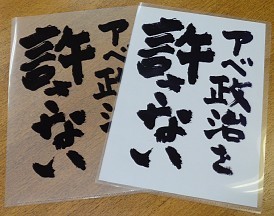 アベ政治を
許さない
アベ政治を
許さない